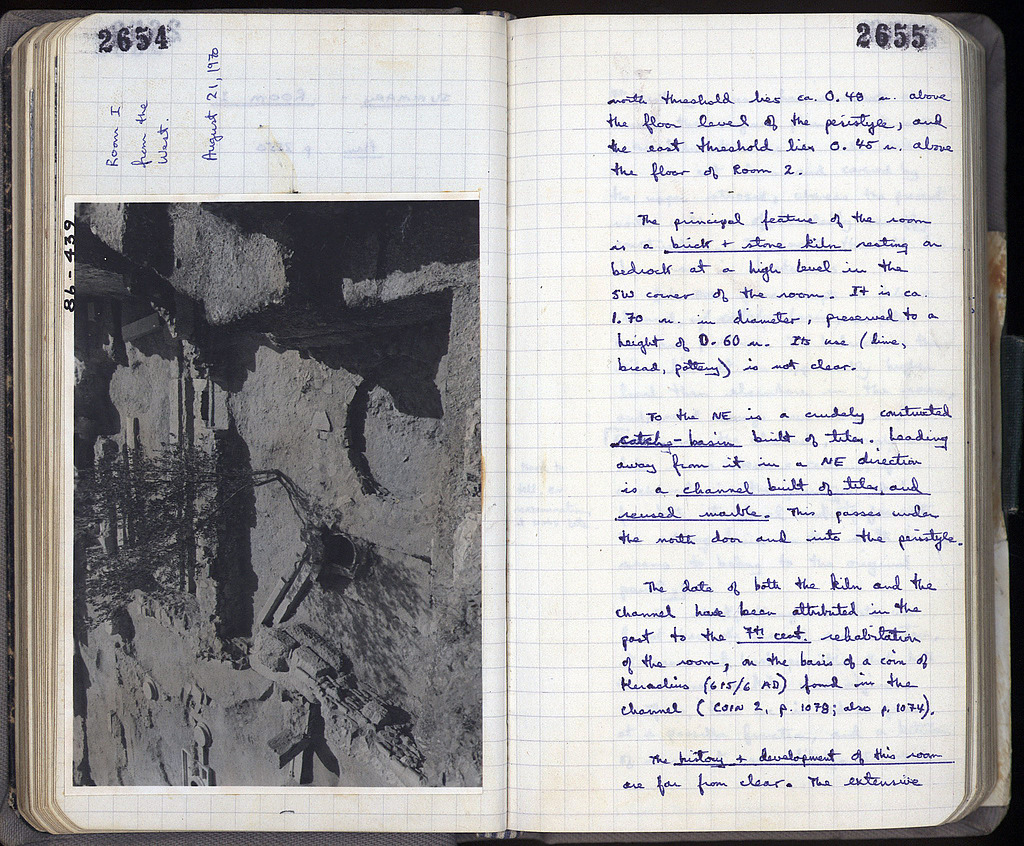 2654
Room I
from the
West.
August 21, 1970
86-439
2655
north threshold lies ca. 0.48 m. above
the floor level of the peristyle, and
the east threshold lies 0.45 m. above
the floor of Room 2.
The principal feature of the room
is a brick + stone kiln resting on
bedrock at a high level in the
SW corner of the room. It is ca.
1.70 m. in diameter, preserved to a
height of 0.60 m. Its use (lime,
bread, pottery) is not clear.
To the NE is a crudely constructed
catch-basin built of tiles. Leading
away from it in a NE direction
is a channel built of tiles, and
reused marble. This passes under
the north door and into the peristyle.
The date of both the kiln and the
channel have been attributed in the
past to the 7th cent. rehabitation
of the room, on the basis of a coin of
Heraclius (615/6 AD) found in the
channel (COIN 2, p. 1078; also p. 1074).
The history + development of this room
are far from clear. The extensive